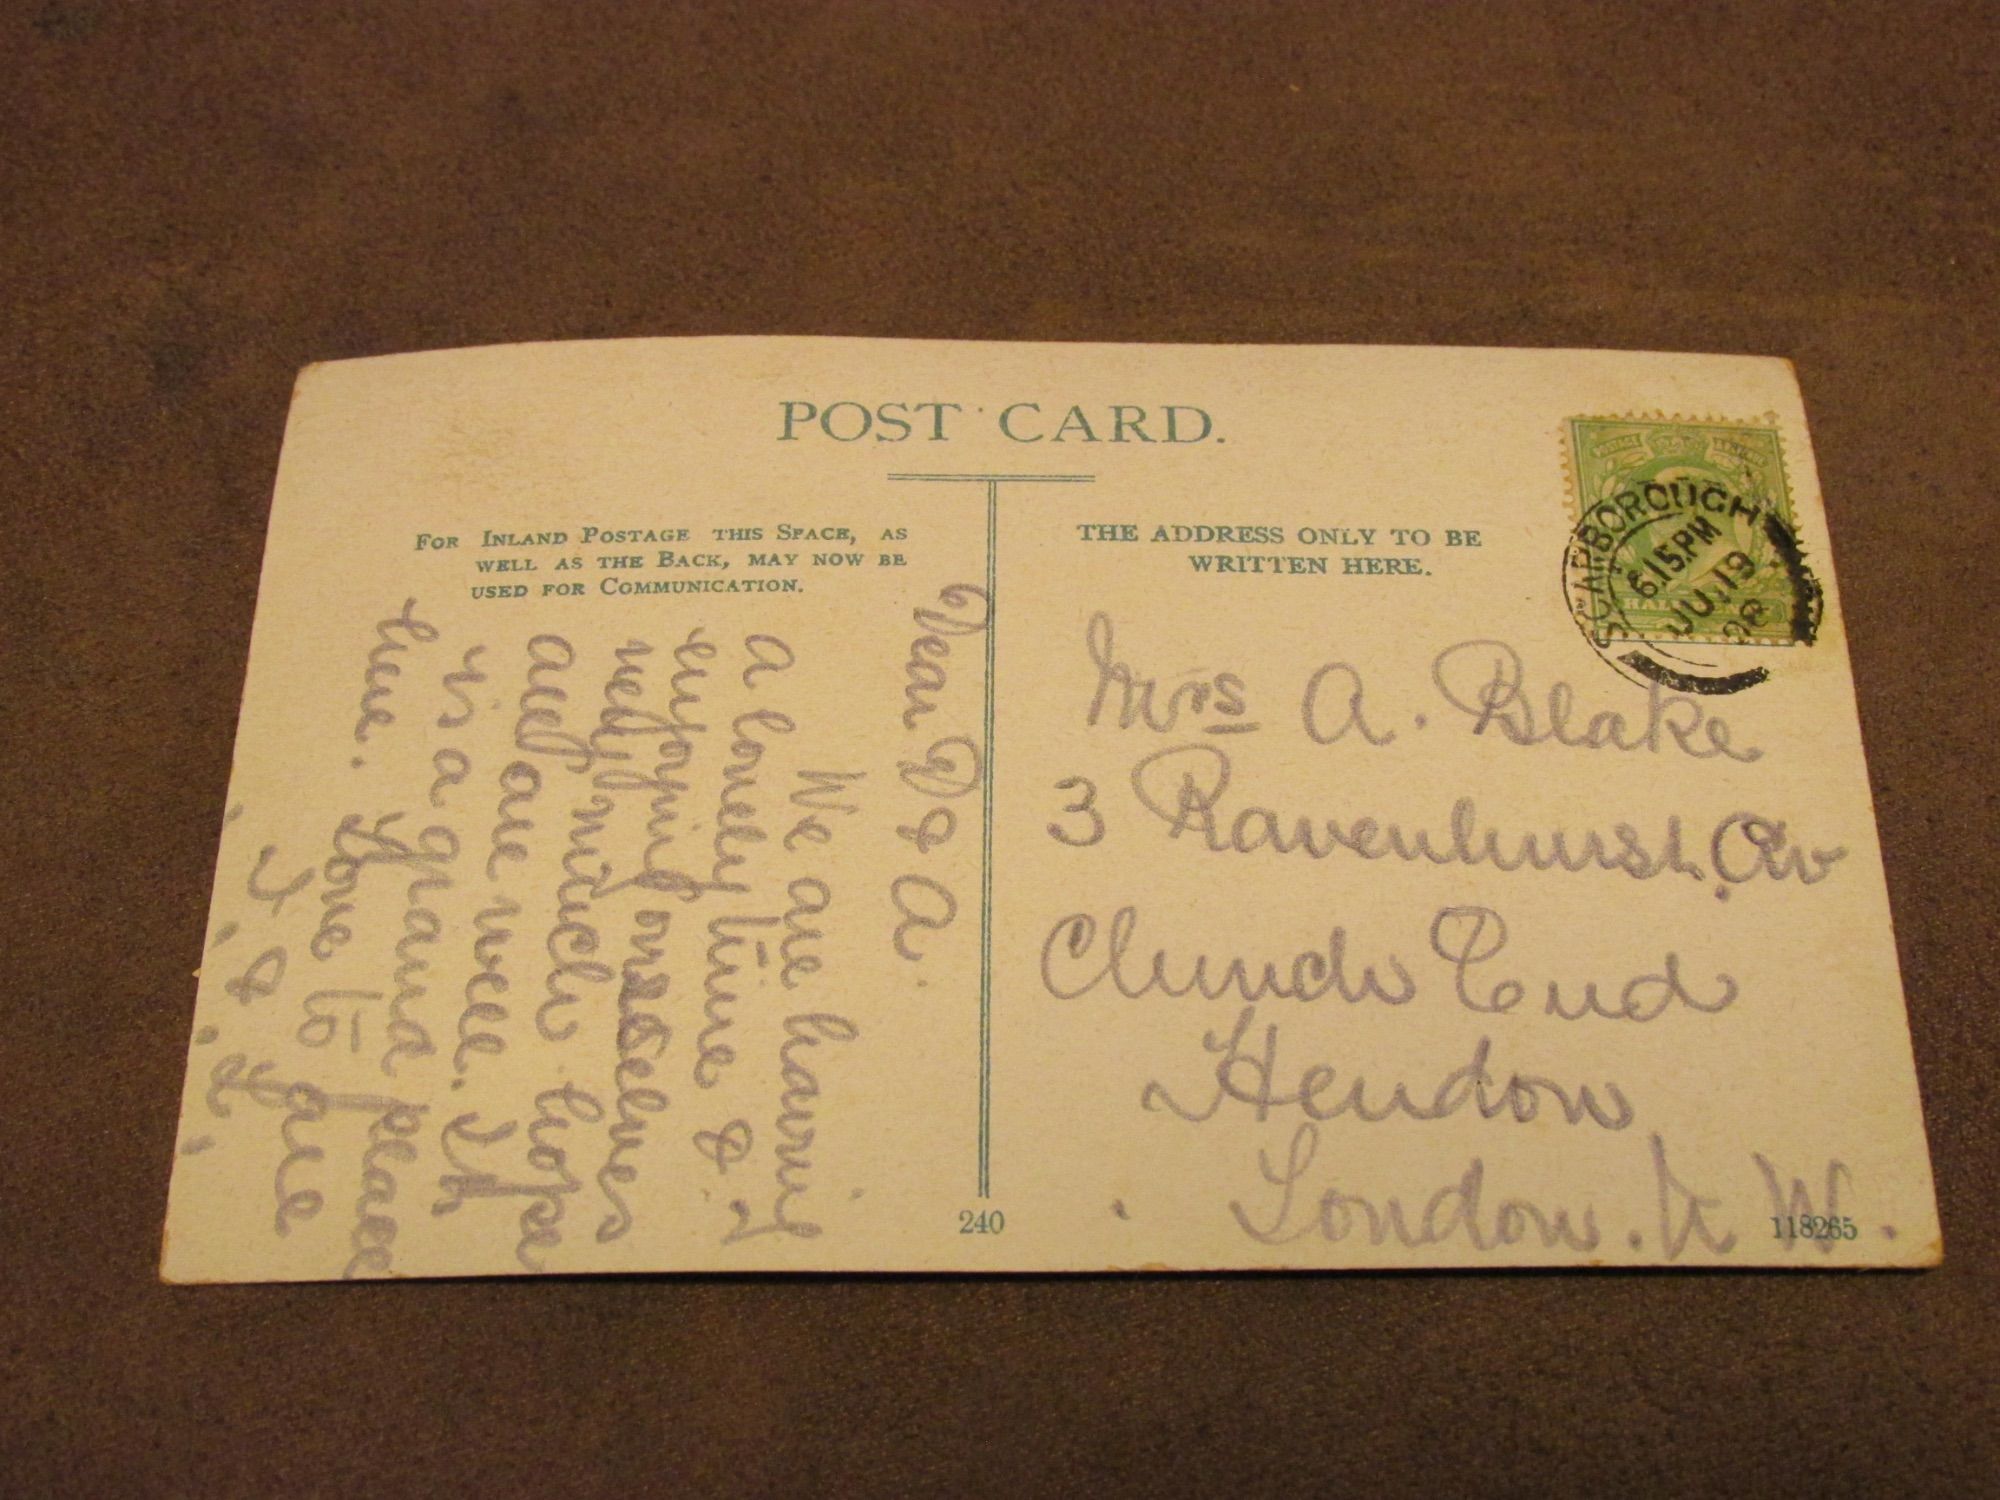 POST CARD.
FOR INLAND POSTAGE THIS SPACE, AS
WELL AS THE BACK, MAY NOW BE
USED FOR COMMUNICATION.
THE ADDRESS ONLY TO BE
WRITTEN HERE.
SCARBOROUGH
6.15.PM
JU 19
HAL
Dear D & A.
We are having
a lovely time &
enjoying ourselves
very much hope
all are well. This
is a grand place
here. Love to all
Mrs A. Blake
3 Ravenhurst Av
Church End
Hendon
London. N W.
240
118265